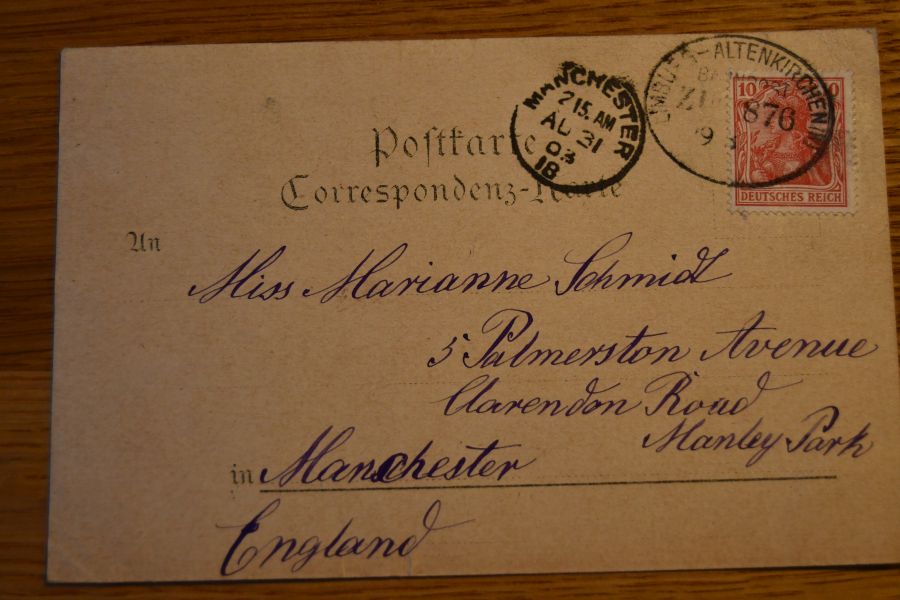 MANCHESTER
2 15. AM
AU 31
03
18
LIMBURG-ALTENKIRCHEN
BAHNPOST
876
9
10 10
DEUTSCHES REICH
Postkarte
Correspondenz-Karte
An
Miss Marianne Schmidt
5 Palmerston Avenue
Clarendon Road
Manley Park
in Manchester
England